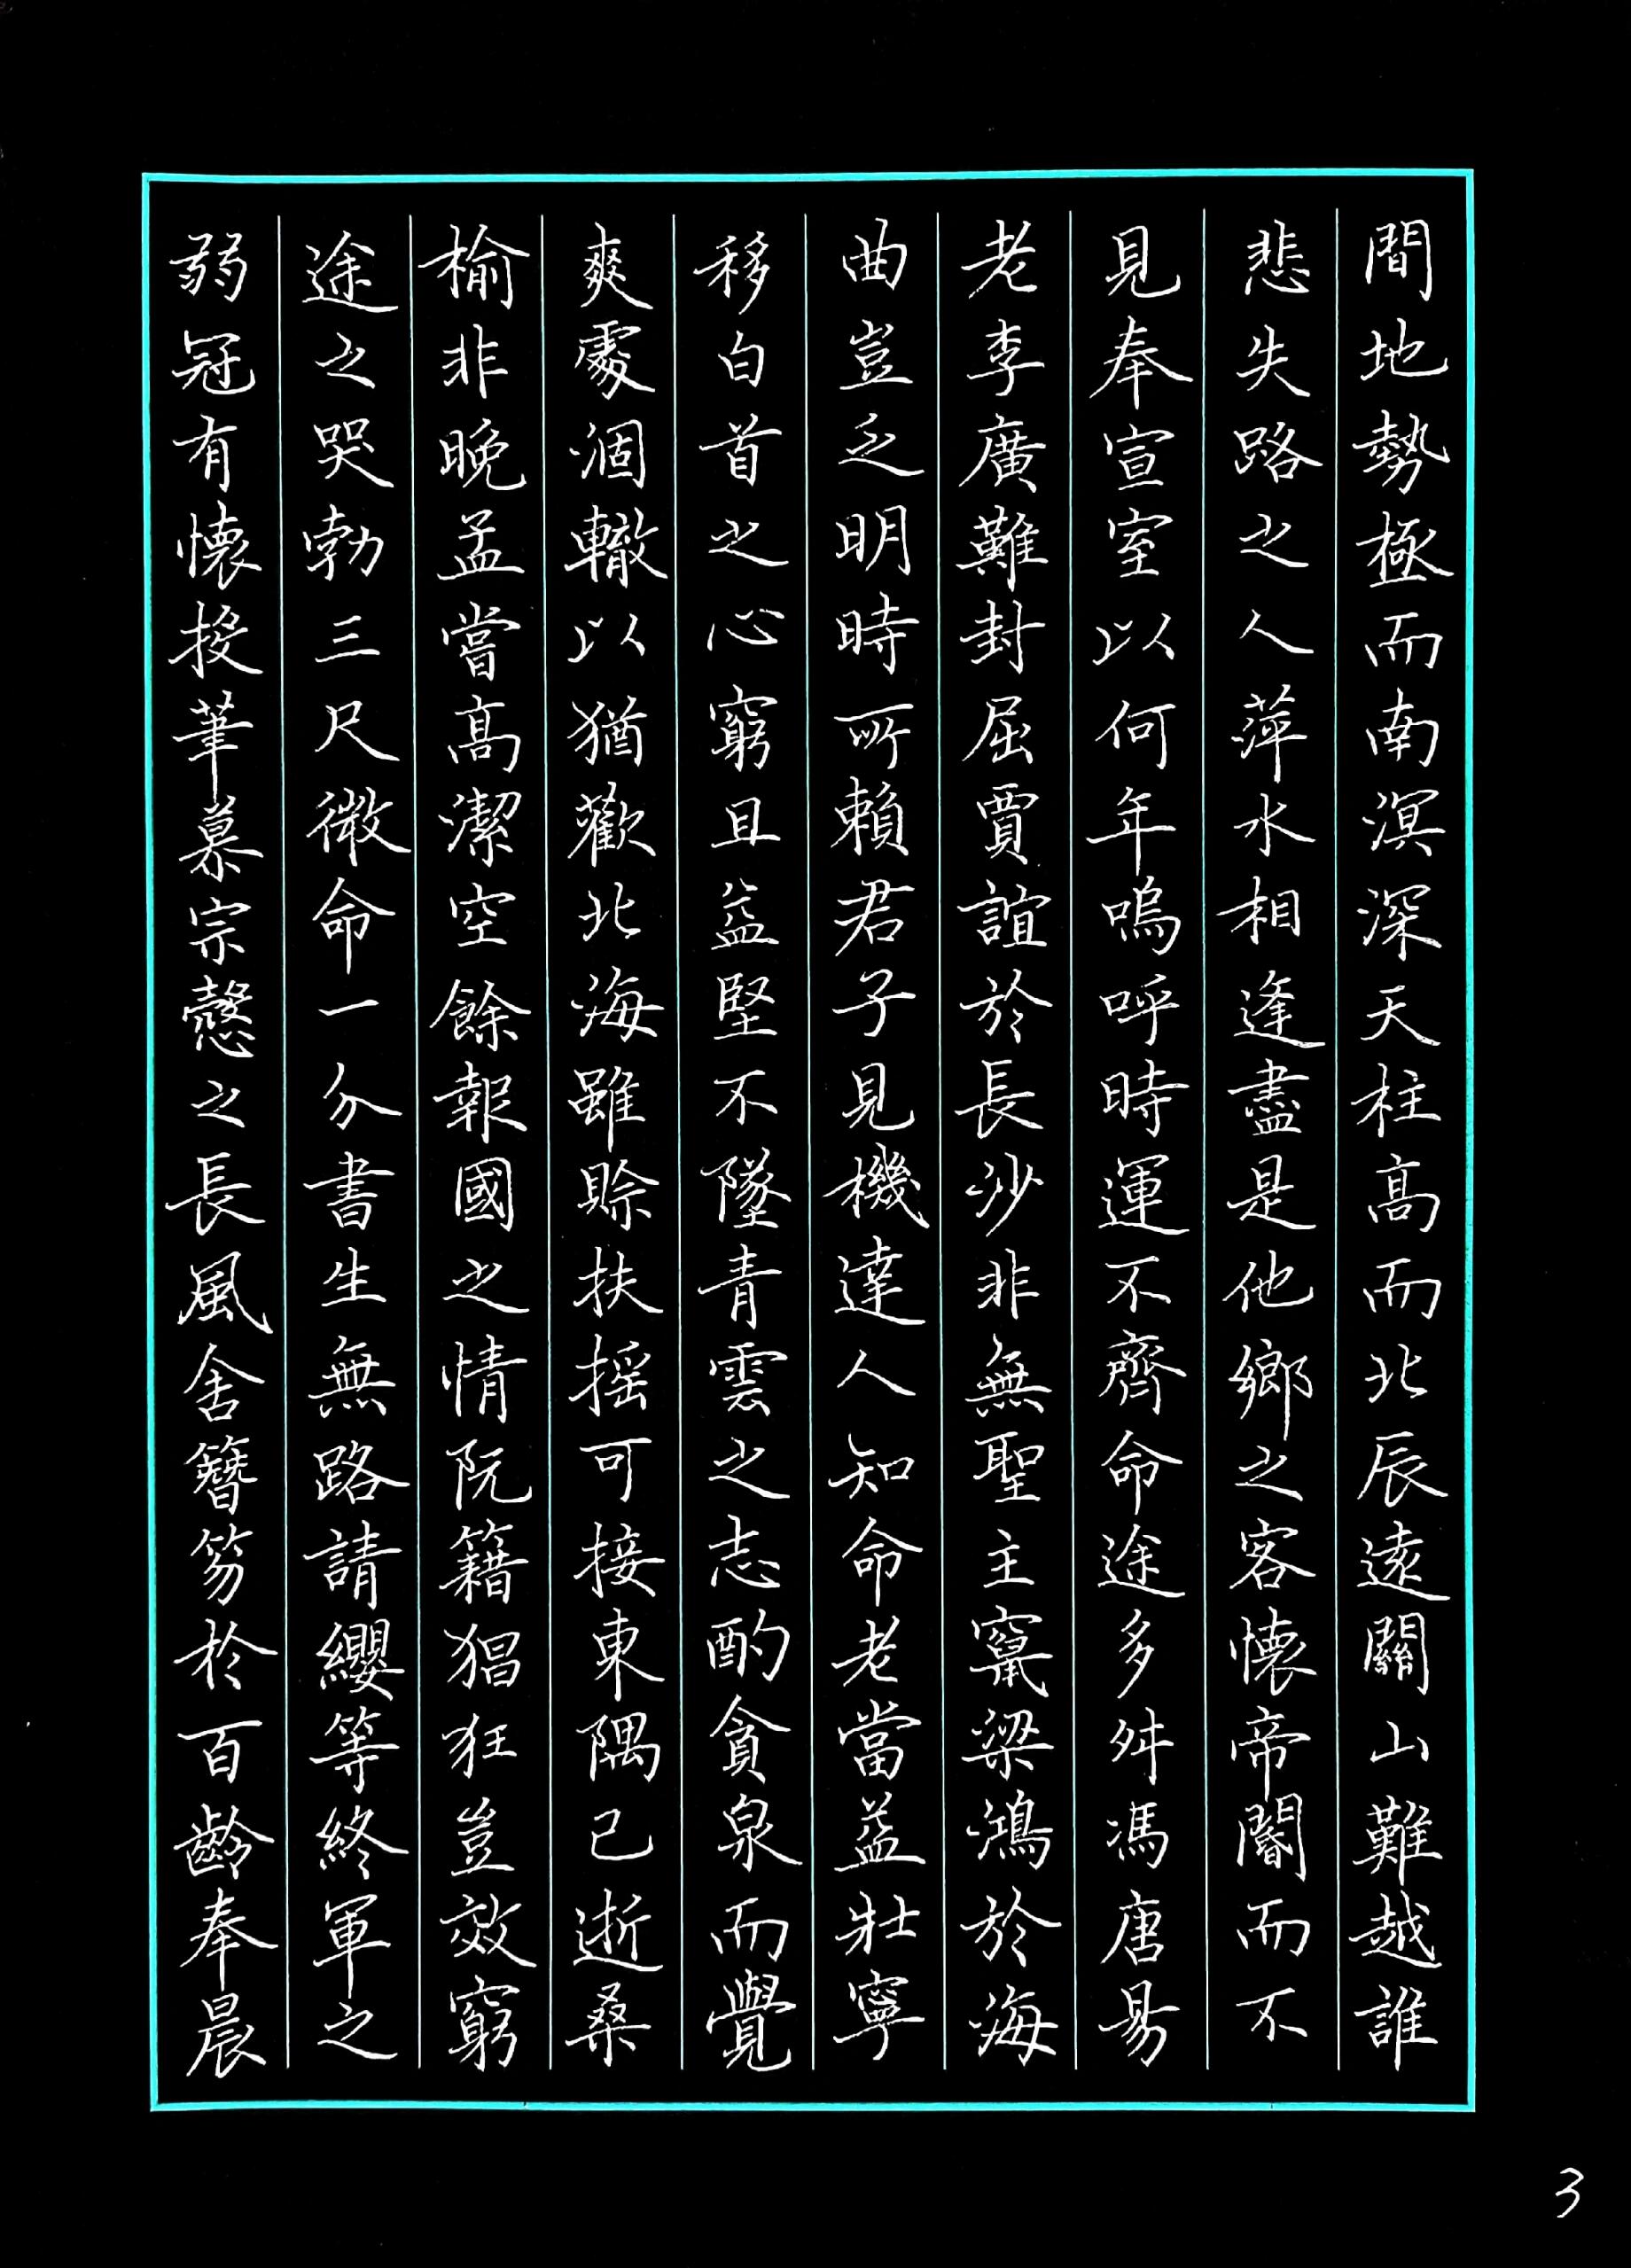 間地勢極而南溟深天柱高而北辰遠關山難越誰
悲失路之人萍水相逢盡是他鄉之客懷帝閽而不
見奉宣室以何年嗚呼時運不齊命途多舛馮唐易
老李廣難封屈賈誼於長沙非無聖主竄梁鴻於海
曲豈乏明時所賴君子見機達人知命老當益壯寧
移白首之心窮且益堅不墜青雲之志酌貪泉而覺
爽處涸轍以猶歡北海雖賒扶摇可接東隅已逝桑
榆非晚孟嘗高潔空餘報國之情阮籍猖狂豈效窮
途之哭勃三尺微命一介書生無路請纓等終軍之
弱冠有懷投筆慕宗慤之長風舍簪笏於百齡奉晨
3